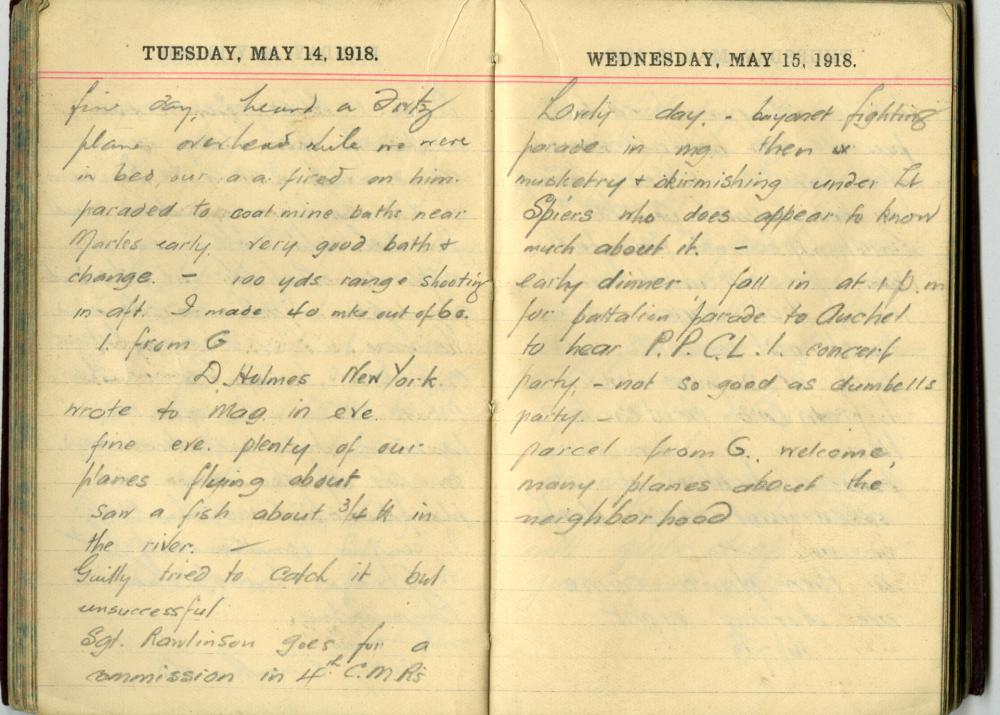 TUESDAY, MAY 14, 1918.
fine day, heard a Fritz
plane overhead while we were
in bed, our a.a. fired on him.
paraded to coal mine baths near
Marles early. very good bath &
change. - 100 yds range shooting
in aft. I made 40 mks out of 60.
1. from G
D. Holmes New York.
wrote to Mag. in eve.
fine eve. plenty of our
planes flying about
saw a fish about 3/4 lb in
the river. -
tried to catch it but
unsuccessful
Sgt. Rawlinson goes for a
commission in 4th C.M.R's
WEDNESDAY, MAY 15, 1918.
Lovely day. - bayonet fighting
parade in mg. then
musketry & skirmishing under Lt
Spiers who does appear to know
much about it. -
early dinner, fall in at 1 p.m
for battalion parade to Auchel
to hear P.P.C.L.I. concert
party, - not so good as dumbells
party. -
parcel from G. welcome,
many planes about the
neighborhood